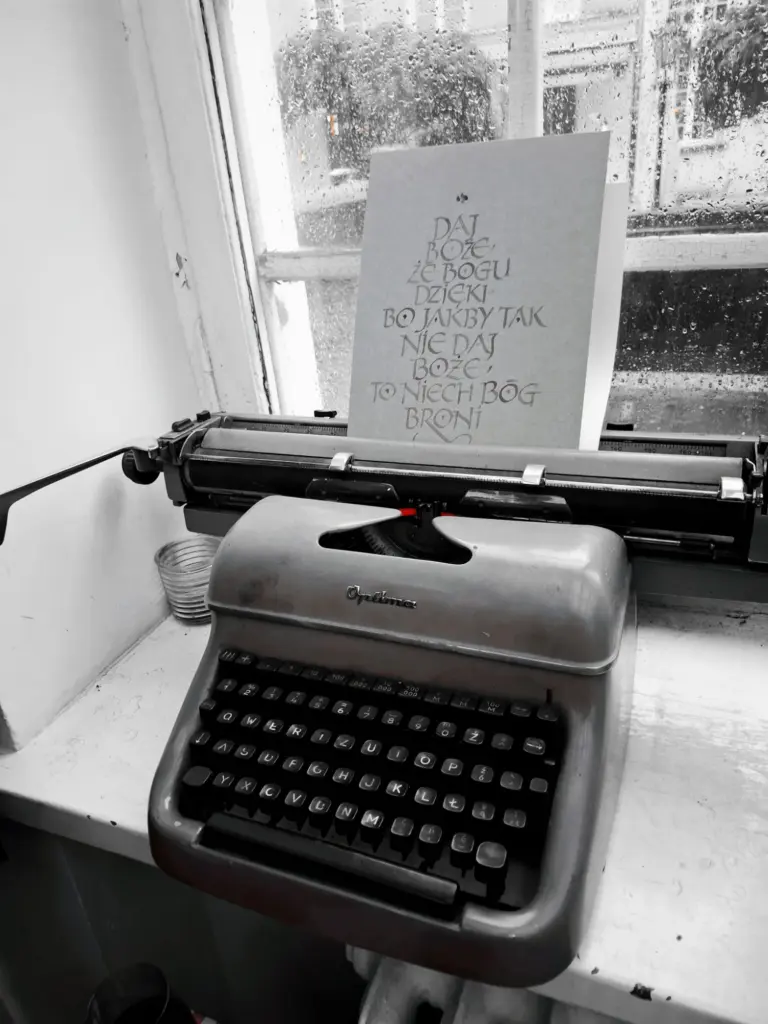 DAJ
BOŻE,
ŻE BOGU
DZIĘKI
BO JAKBY TAK
NIE DAJ
BOŻE,
TO NIECH BÓG
BRONI
Optima
1 2 3 4 5 6 7 8 9 0 Ż
Q W E R T Z U I O P
A S D F G H J K L Ł
Y X C V B N M